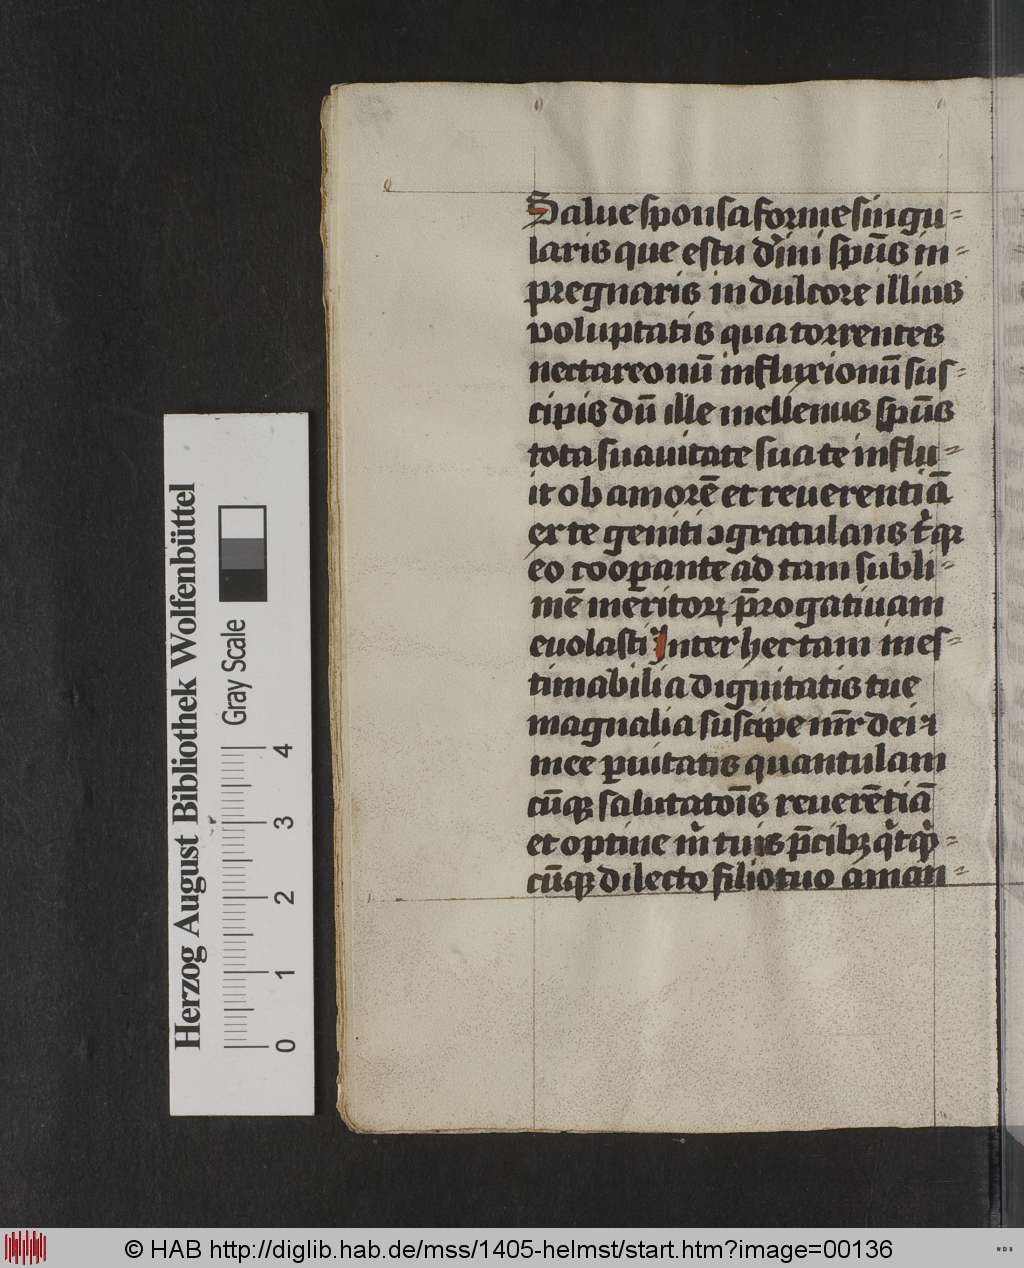 Salue sponsa forme singu-
laris que es tu diuini sp̄us in-
pregnaris in dulcore illius
voluptatis qua torrentes
nectareonū influxionū sus-
cipis dū ille mellenus sp̄us
tota suauitate sua te influ-
it ob amorē et reuerentiā
ex te geniti ꝯgratulans
eo cooꝑante ad tam subli-
mē meritoꝝ p̄rogatiuam
euolasti Inter hec tam ines-
timabilia dignitatis tue
magnalia suscipe mr̄ dei ⁊
mee ꝑuitatis quantulam
cūqꝫ salutatōis reuerētiā
et optine m̉ tuis p̄cibꝫ
cūqꝫ dilecto filio tuo aman-
Herzog August Bibliothek Wolfenbüttel
Gray Scale
0 1 2 3 4
© HAB http://diglib.hab.de/mss/1405-helmst/start.htm?image=00136